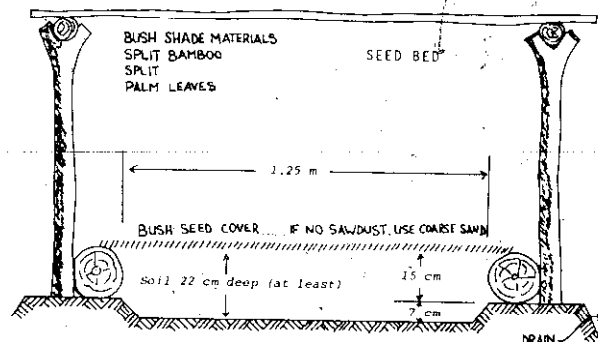 BUSH SHADE MATERIALS
SPLIT BAMBOO
SPLIT
PALM LEAVES
SEED BED
1.25 m
BUSH SEED COVER.... IF NO SAWDUST, USE COARSE SAND
Soil 22 cm deep (at least)
15 cm
7 cm
DRAIN